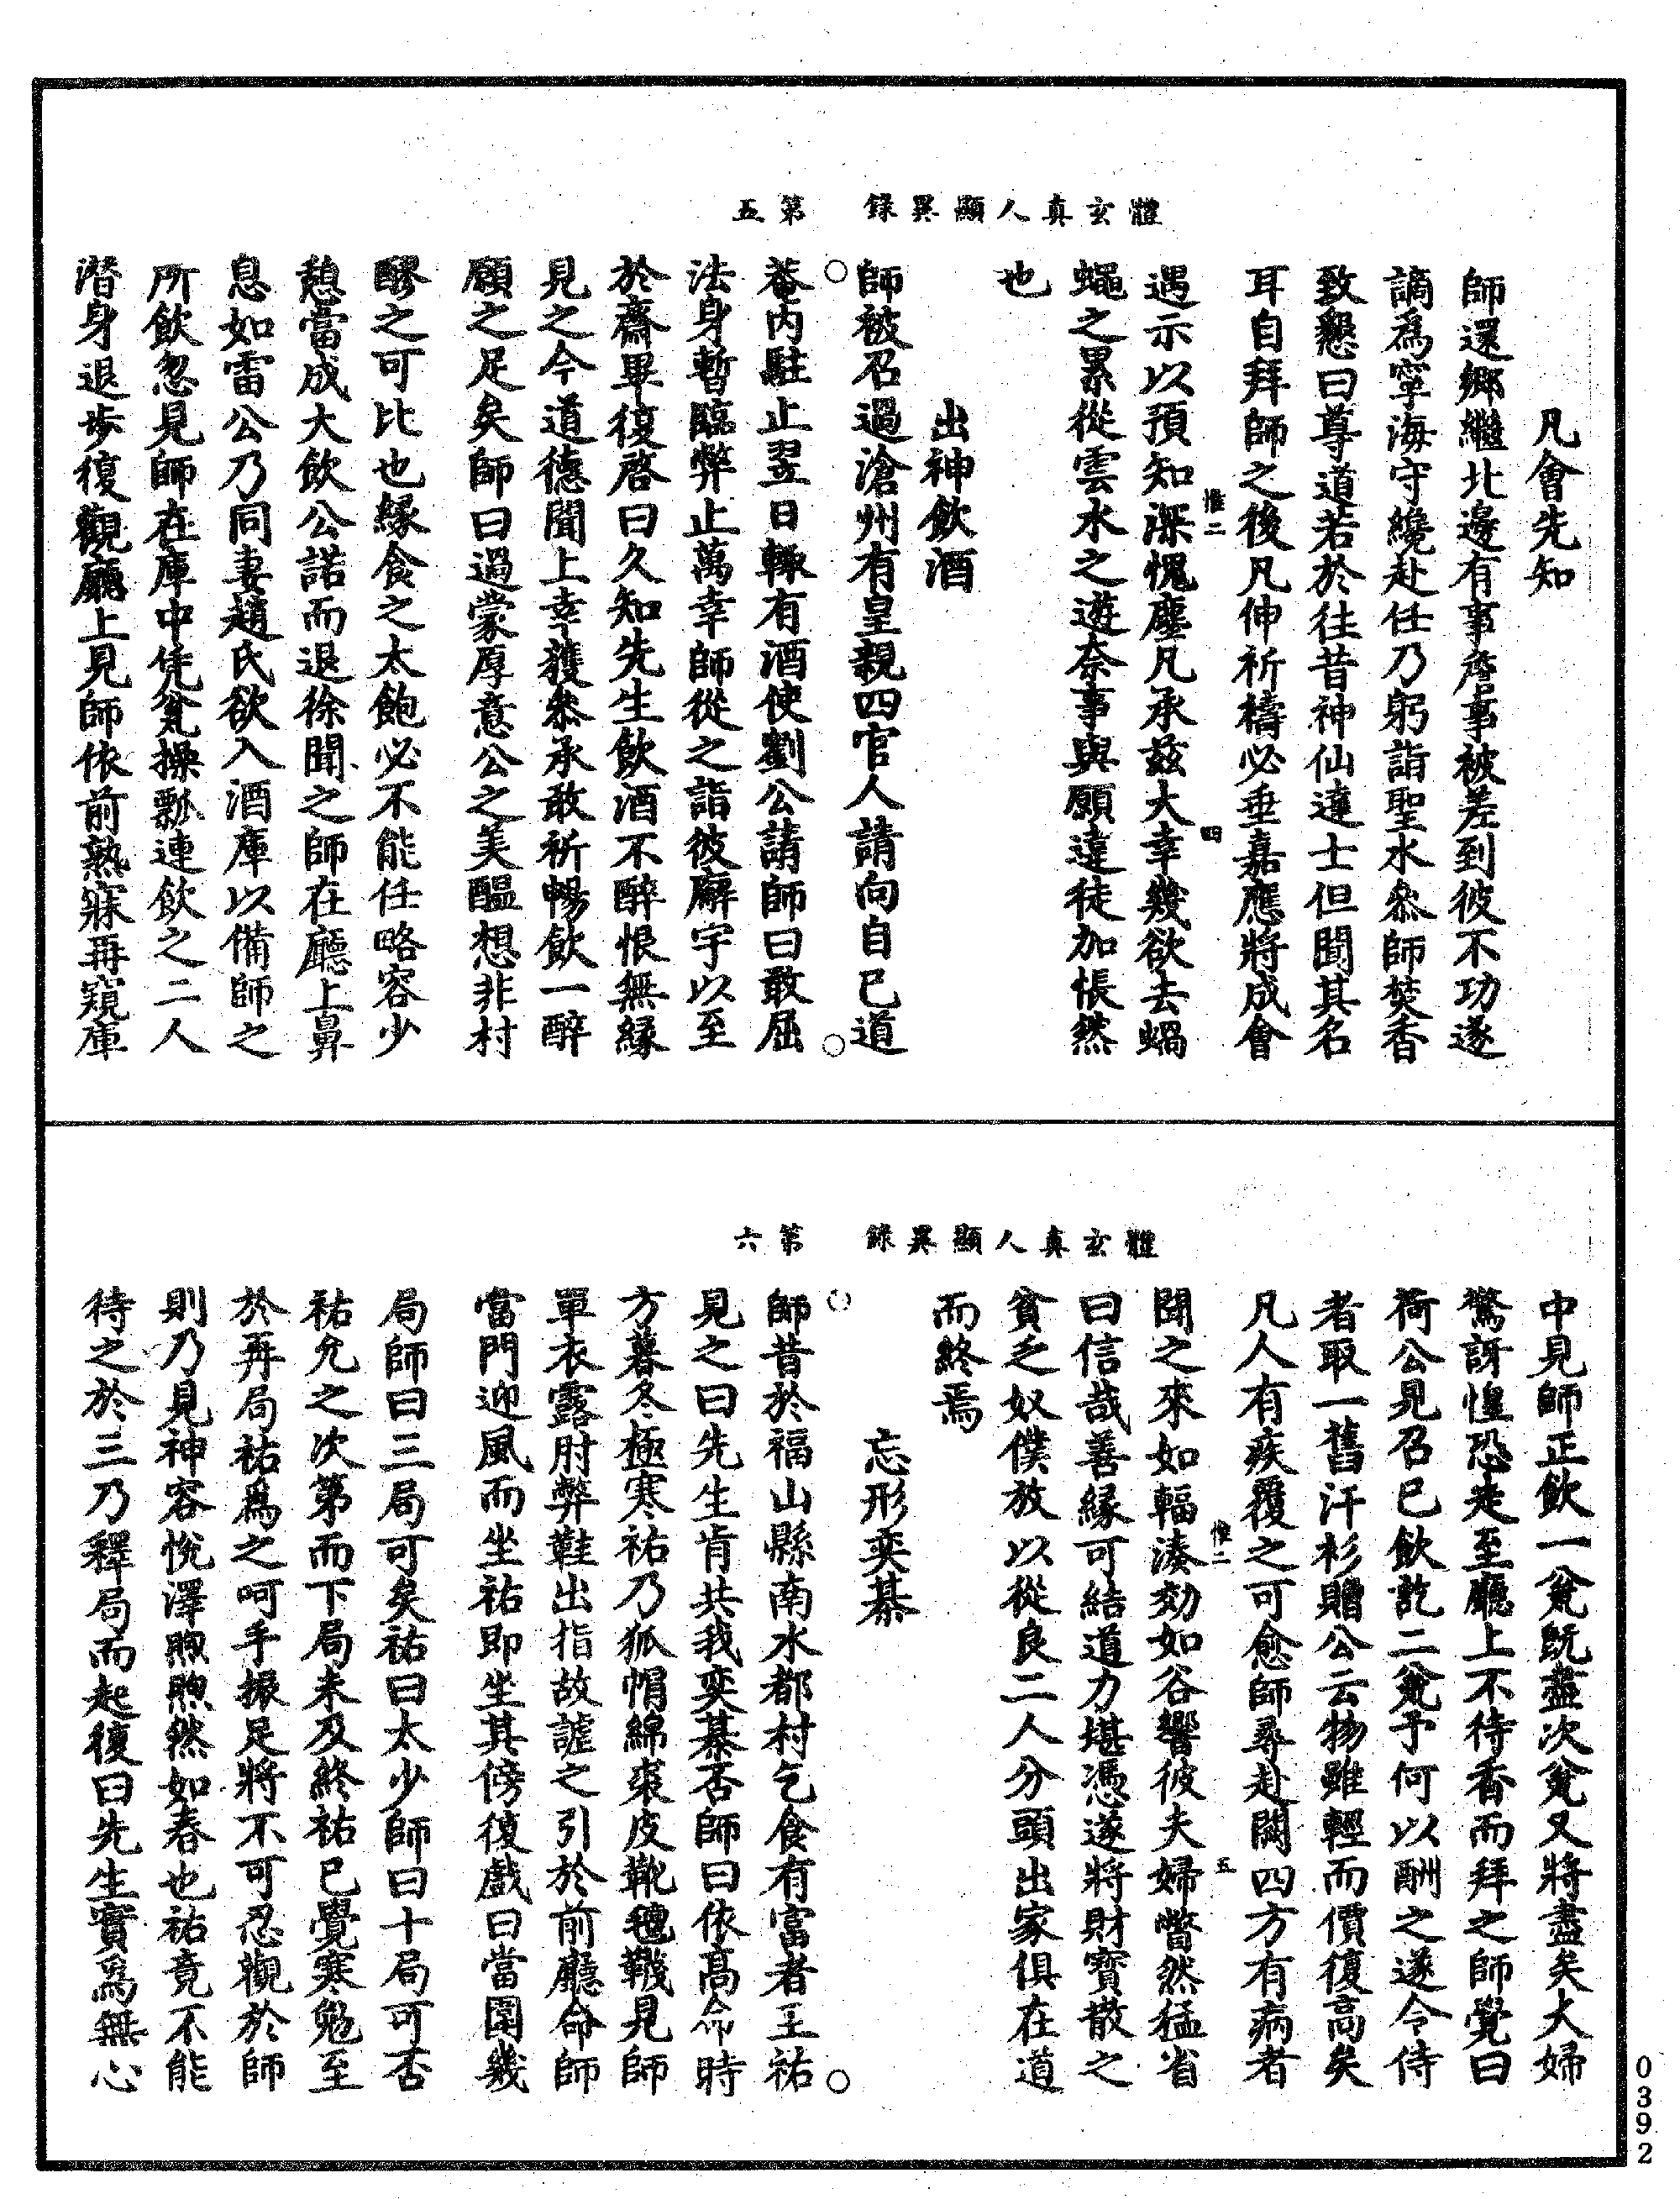 體玄真人顯異錄　第五
凡會先知
師還鄉繼北邊有事詹事被差到彼不功遂
謫為寧海守纔赴任乃躬詣聖水叅師焚香
致懇曰尊道若於往昔神仙達士但聞其名
耳自拜師之後凡伸祈禱必垂嘉應將成會
惟二　四
遇示以預知深愧塵凡承兹大幸幾欲去蝸
蠅之累從雲水之遊奈事與願違徒加悵然
也
出神飲酒
師被召過滄州有皇親四官人請向自巳道
菴内駐止翌日輙有酒使劉公請師曰敢屈
法身暫臨弊止萬幸師從之詣彼廨宇以至
於齋畢復啓曰久知先生飲酒不醉恨無緣
見之今道德聞上幸獲叅承敢祈暢飲一醉
願之足矣師曰過蒙厚意公之美醖想非村
醪之可比也緣食之太飽必不能任略容少
憩當成大飲公諾而退徐聞之師在廳上鼻
息如雷公乃同妻趙氏欲入酒庫以備師之
所飲忽見師在庫中凭瓮操瓢連飲之二人
潛身退步復觀廳上見師依前熟寐再窺庫
體玄真人顯異錄　第六
中見師正飲一瓮旣盡次瓮又將盡矣夫婦
驚訝惶恐走至廳上不待香而拜之師覺曰
荷公見召巳飲訖二瓮予何以酬之遂令侍
者取一舊汗衫贈公云物雖輕而價復高矣
凡人有疾覆之可愈師尋赴闕四方有病者
惟二　五
聞之來如輻湊効如谷響彼夫婦瞥然猛省
曰信哉善緣可結道力堪憑遂將財寳散之
貧乏奴僕放以從良二人分頭出家俱在道
而終焉
忘形奕棊
師昔於福山縣南水都村乞食有富者王祐
見之曰先生肯共我奕棊否師曰依髙命時
方暮冬極寒祐乃狐帽綿裘皮靴氊韈見師
單衣露肘弊鞋出指故謔之引於前廳命師
當門迎風而坐祐即坐其傍復戲曰當圍幾
局師曰三局可矣祐曰太少師曰十局可否
祐允之次第而下局未及終祐巳覺寒勉至
於再局祐爲之呵手振足將不可忍觀於師
則乃見神容悅澤煦煦然如春也祐竟不能
待之於三乃釋局而起復曰先生實爲無心
0392